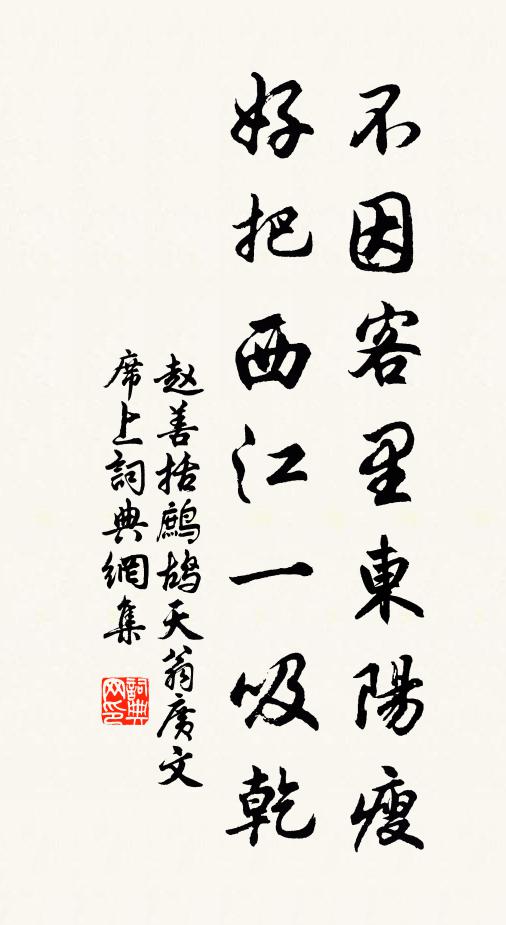 不因客里東陽瘦
好把西江一吸乾
赵善括鹧鸪天翁廣文
席上詞典網集
詞典网印